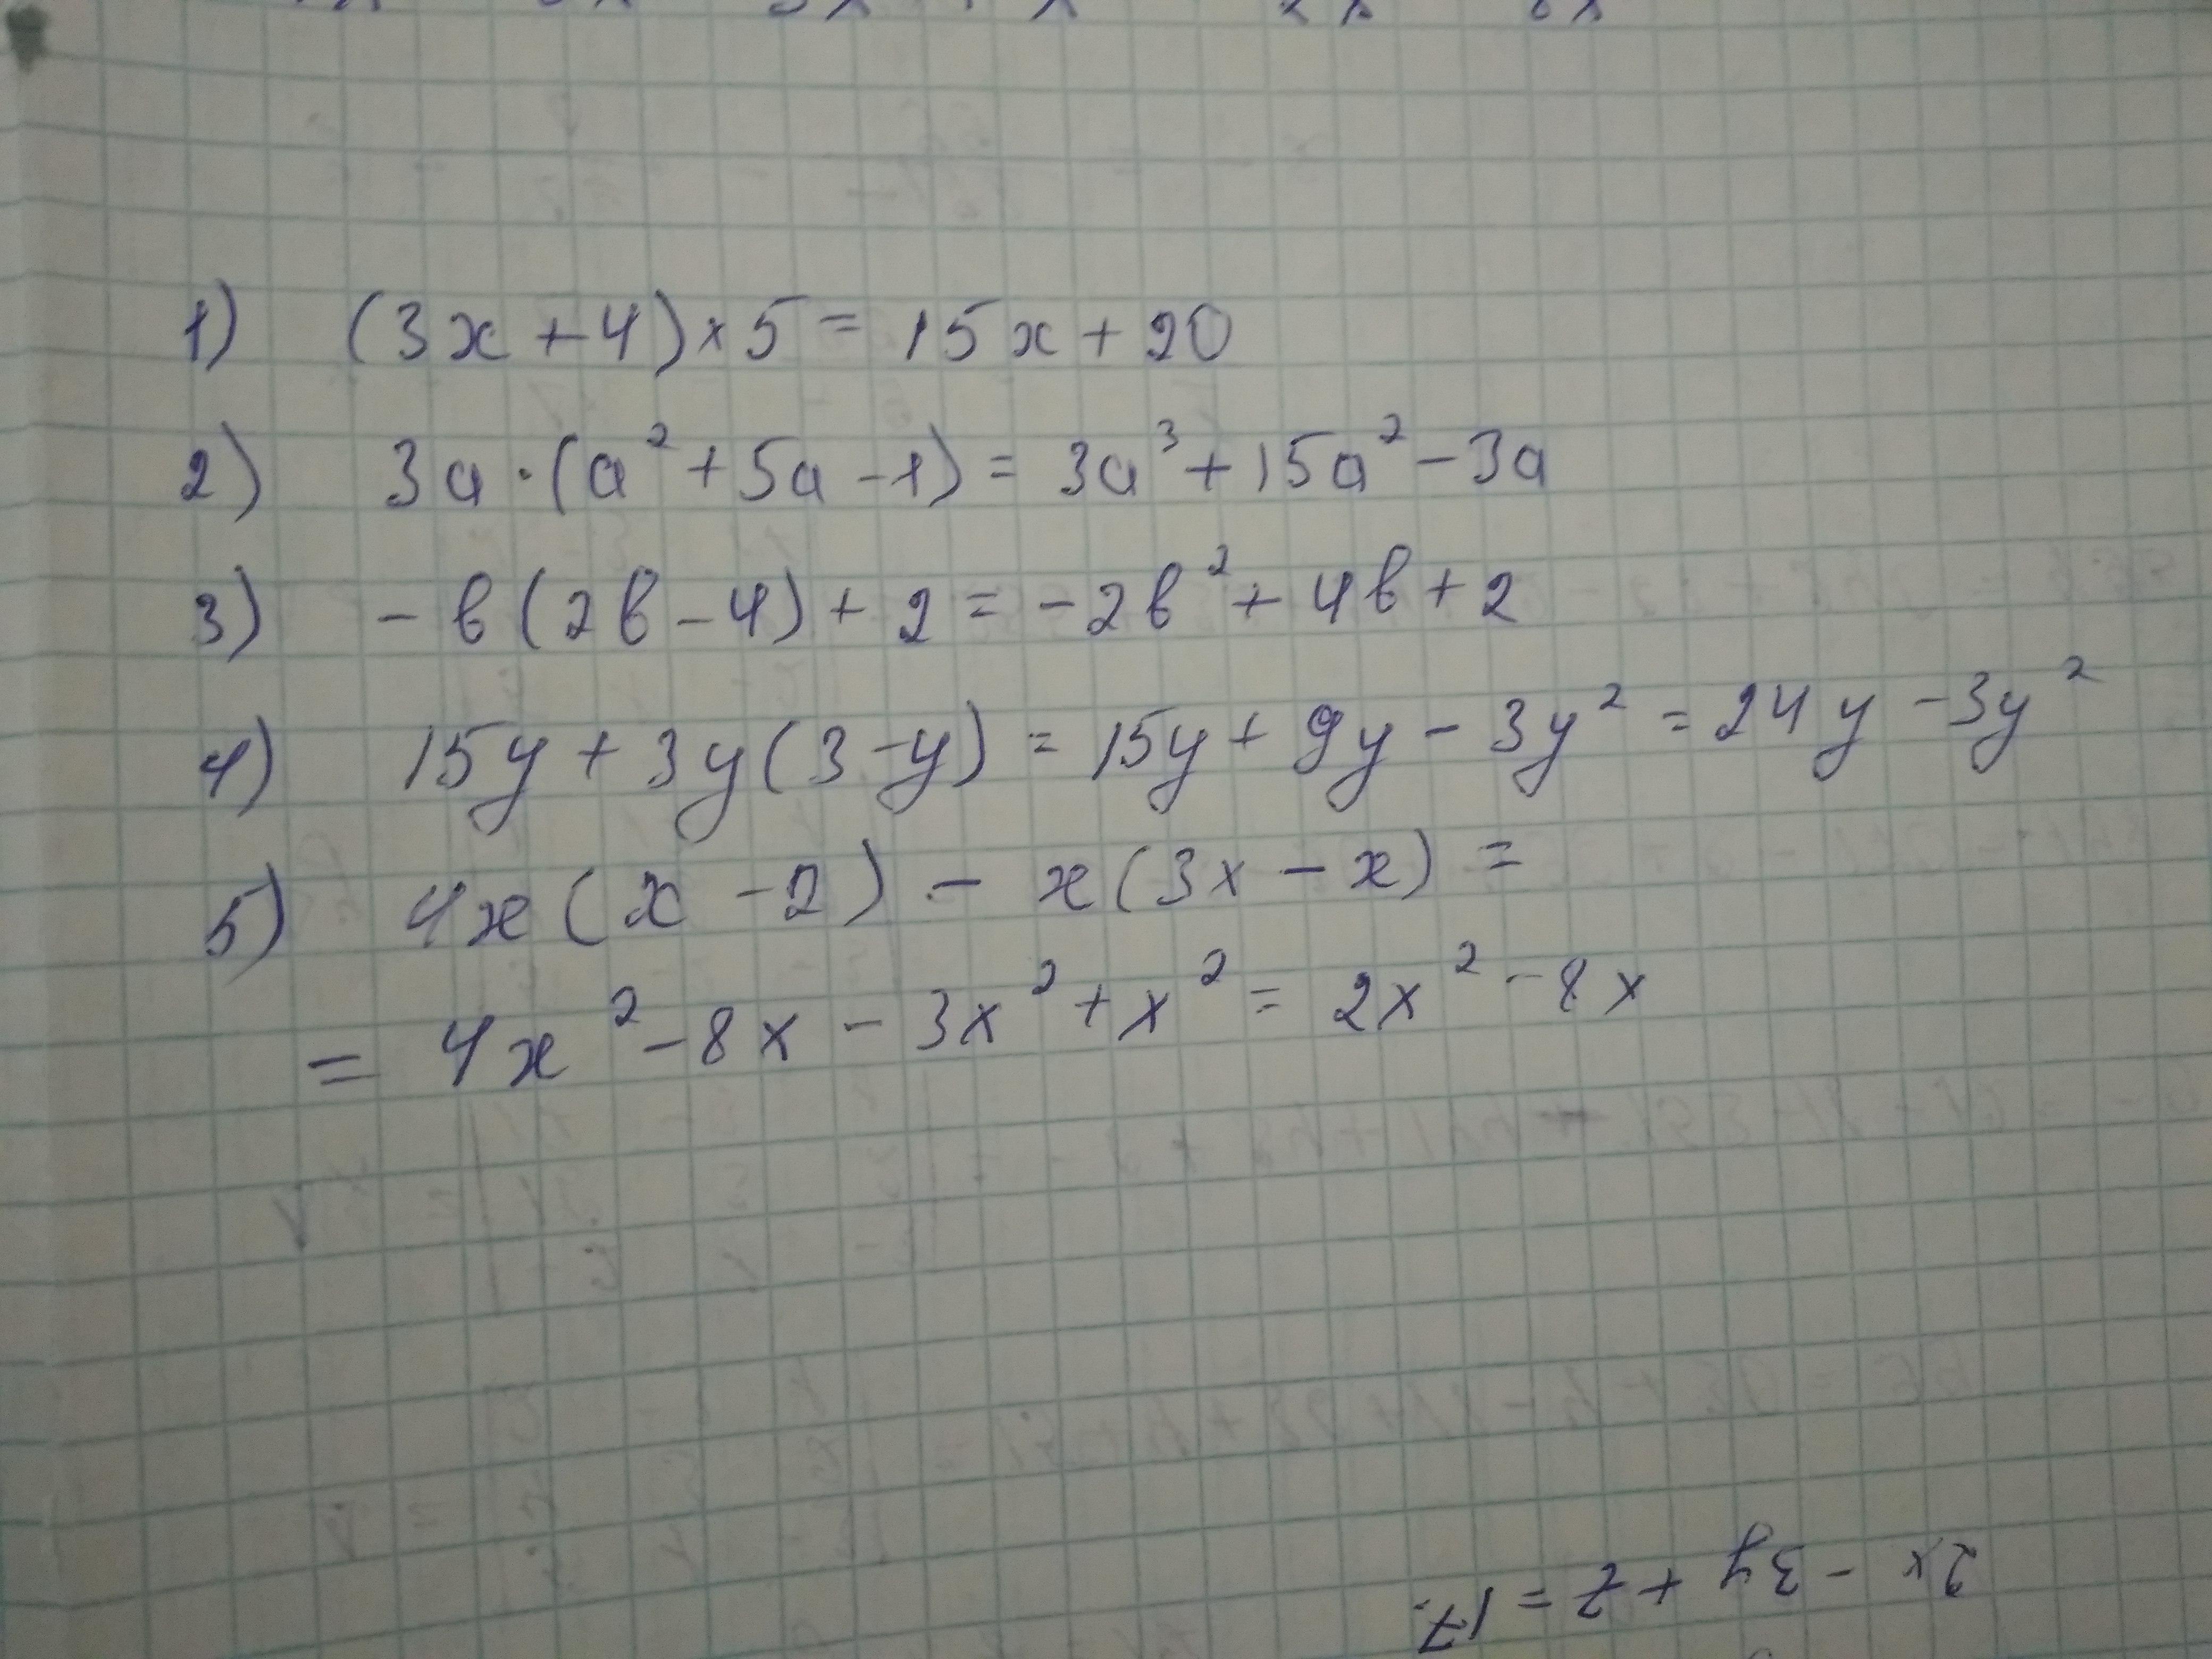 1) (3x+4)×5=15x+20
2) 3a·(a²+5a-1)=3a³+15a²-3a
3) -в(2в-4)+2=-2в²+4в+2
4) 15y+3y(3-y)=15y+9y-3y²=24y-3y²
5) 4x(x-2)-x(3x-x)=
=4x²-8x-3x²+x²=2x²-8x
2x-3y+z=17.